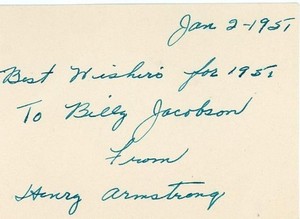 Jan 2-1951
Best Wisher's for 1951
To Billy Jacobson
From
Henry Armstrong